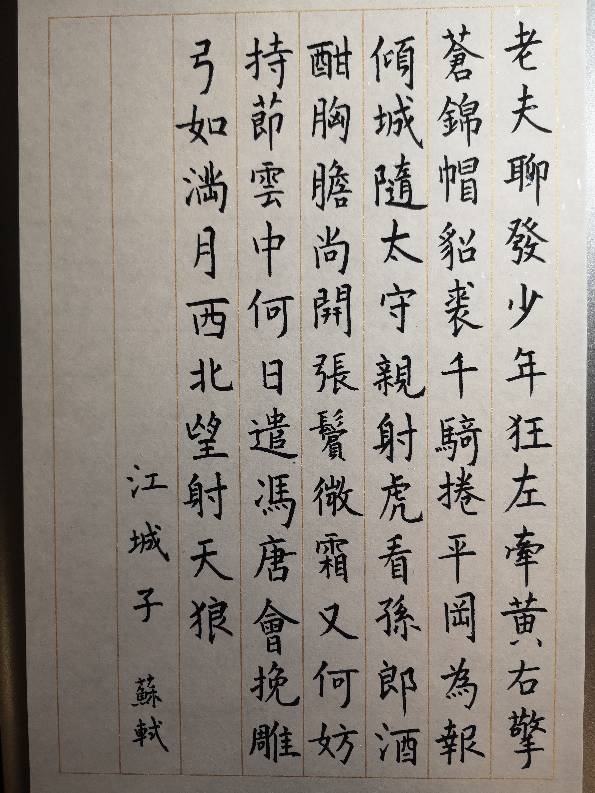 老夫聊發少年狂左牽黃右擎
蒼錦帽貂裘千騎捲平岡為報
傾城隨太守親射虎看孫郎酒
酣胸膽尚開張鬢微霜又何妨
持節雲中何日遣馮唐會挽雕
弓如滿月西北望射天狼
江城子 蘇軾